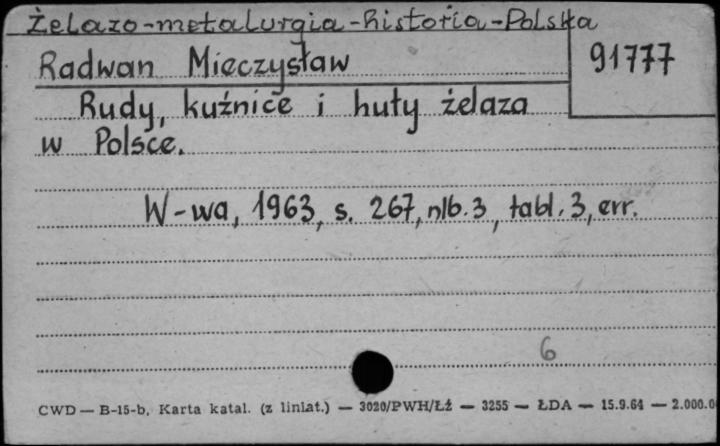 Żelazo-metalurgia-historia-Polska
Radwan Mieczysław 91777
Rudy, kuźnice i huty żelaza
w Polsce.
W-wa, 1963, s. 267, nlb. 3, tabl. 3, err.
6
CWD — B-15-b. Karta katal. (z liniat.) — 3020/PWH/ŁŻ — 3255 — ŁDA — 15.9.64 — 2.000.0